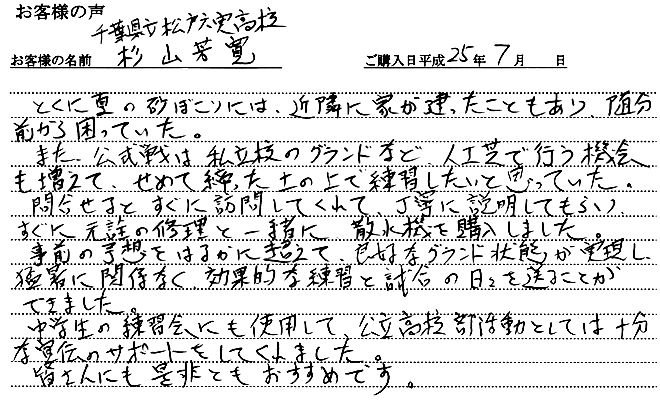 お客様の声
千葉県立松戸六実高校
お客様の名前 杉山芳寛 ご購入日平成25年7月 日
とくに夏の砂ぼこりには、近隣に家が建ったこともあり、随分
前から困っていた。
また、公式戦は私立校のグランドなど、人工芝で行う機会
も増えて、せめて練った土の上で練習したいと思っていた。
問合せるとすぐに訪問してくれて、丁寧に説明してもらい、
すぐに元詮の修理と一緒に 散水機を購入しました。
事前の予想をはるかに超えて、良好なグランド状態が実現し、
猛暑に関係なく、効果的な練習と試合の日々を送ることが
できました。
中学生の練習会にも使用して、公立高校部活動としては十分
な宣伝のサポートをしてくれました。
皆さんにも是非ともおすすめです。